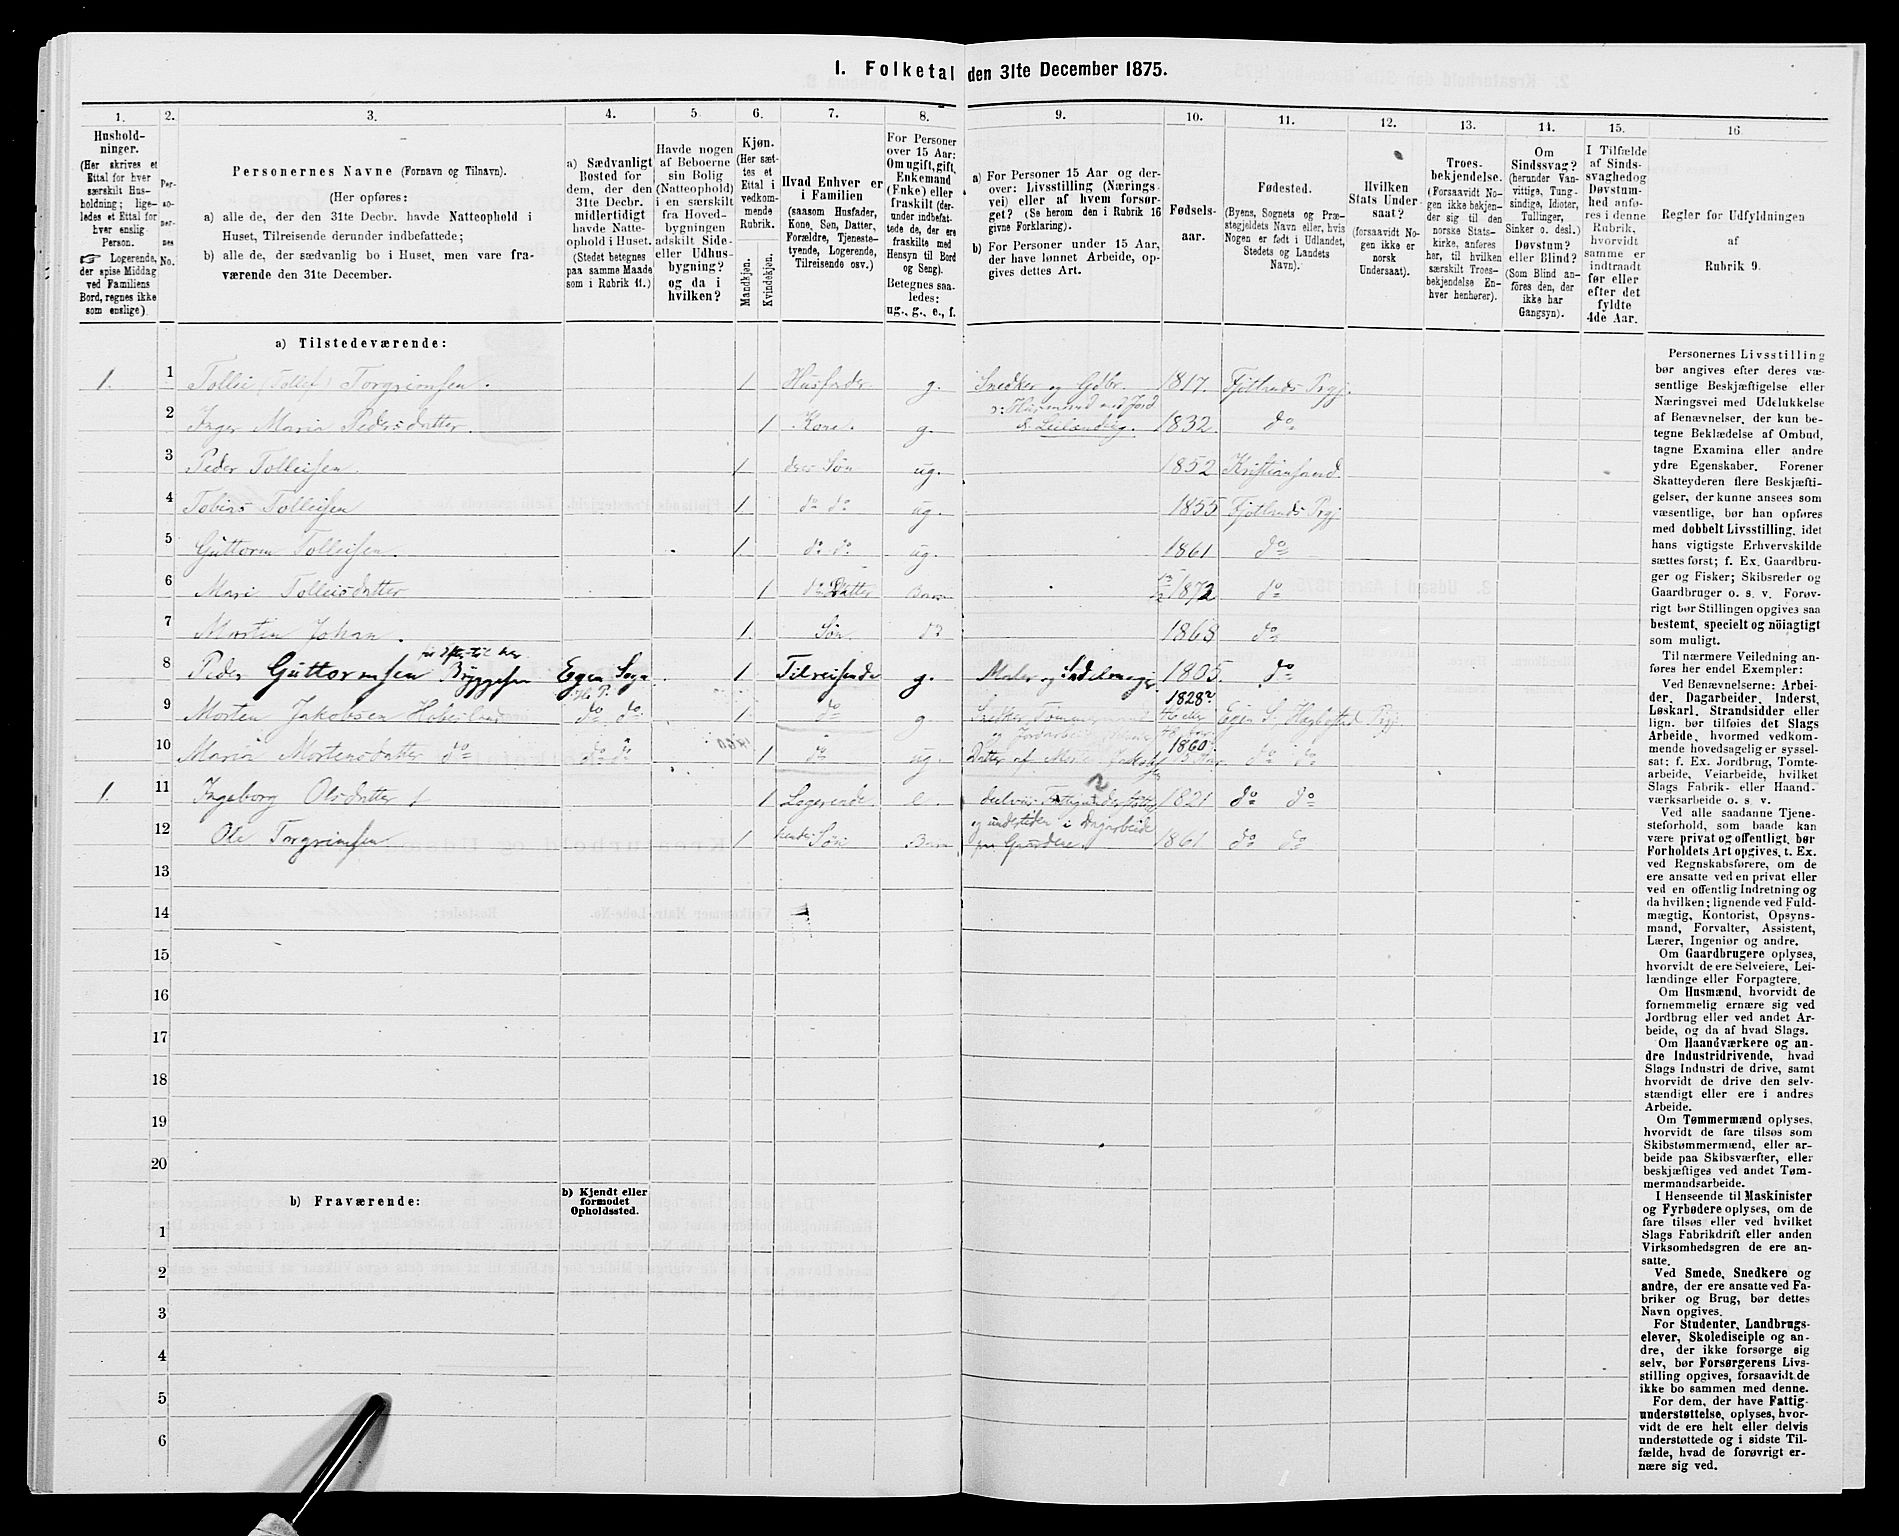 I. Folketal den 31te December 1875.
1. 2. 3. 4. 5. 6. 7. 8. 9. 10. 11. 12. 13. 14. 15. 16
Hushold-
ninger.
(Her skrives et
Ettal for hver
særskilt Hus-
holdning; lige-
ledes et Ettal for
hver enslig
Person.
☞ Logerende,
der spise Middag
ved Familiens
Bord, regnes ikke
som enslige)
Per-
so-
ner-
nes
No.
Personernes Navne (Fornavn og Tilnavn).
(Her opføres:
a) alle de, der den 31te Decbr. havde Natteophold i
Huset, Tilreisende derunder indbefattede;
b) alle de, der sædvanlig bo i Huset, men vare fra-
værende den 31te December.
a) Sædvanligt
Bosted for
dem, der den
31te Decbr.
midlertidigt
havde Natte-
ophold i Huset.
(Stedet betegnes
paa samme Maade
som i Rubrik 11.)
Havde nogen
af Beboerne
sin Bolig
(Natteophold)
i en særskilt
fra Hoved-
bygningen
adskilt Side-
eller Udhus-
bygning?
og da i
hvilken?
Kjøn.
(Her sæt-
tes et
Ettal i
vedkom-
mende
Rubrik.
Mandkjøn.
Kvindekjøn.
Hvad Enhver er
i Familien
(saasom Husfader,
Kone, Søn, Datter,
Forældre, Tjeneste-
tyende, Logerende,
Tilreisende osv.)
For Personer
over 15 Aar:
Om ugift, gift,
Enkemand
(Enke) eller
fraskilt (der-
under indbefat-
tede de, der ere
fraskilte med
Hensyn til Bord
og Seng).
Betegnes saa-
ledes:
ug., g., e., f.
a) For Personer 15 Aar og der-
over: Livsstilling (Nærings-
vei) eller af hvem forsør-
get? (Se herom den i Rubrik 16
givne Forklaring).
b) For Personer under 15 Aar,
der have lønnet Arbeide, op-
gives dettes Art.
Fødsels-
aar.
Fødested.
(Byens, Sognets og Præ-
stegjeldets Navn eller, hvis
Nogen er født i Udlandet,
Stedets og Landets
Navn).
Hvilken
Stats Under-
saat?
(forsaavidt No-
gen ikke er
norsk
Undersaat).
Troes-
bekjendelse.
(Forsaavidt No-
gen ikke bekjen-
der sig til den
norske Stats-
kirke, anføres
her, til hvilken
særskilt Troes-
bekjendelse En-
hver henhører).
Om
Sindssvag?
(herunder Van-
vittige, Tung-
sindige, Idioter,
Tullinger,
Sinker o. desl.)
Døvstum?
eller Blind?
(Som Blind an-
føres den, der
ikke har
Gangsyn).
I Tilfælde
af Sinds-
svaghed og
Døvstum-
hed anfø-
res i denne
Rubrik,
hvorvidt
samme er
indtraadt
før eller
efter det
fyldte
4de Aar.
Regler for Udfyldningen
af
Rubrik 9.
a) Tilstedeværende:
1. 1 Tollei (Tollef) Torgrimsen. 1 Husfader g. Snedker og Gdbr. 1817. Fjotlands Prgj.
2 Inger Maria Pedersdatter. 1 Kone. g. ɔ: Husmand med Jord & Leilændig. 1832. do
3 Peder Tolleisen 1 deres Søn ug. 1852 Kristianssand.
4 Tobias Tolleisen 1 do do ug. 1855 Fjotlands Prgj.
5 Guttorm Tolleisen. 1 do do ug. 1861 do
6 Mari Tolleisdatter 1 do Datter Barn 1872 do
7 Mortin Johan. 1 Søn do 1868 do
8 Peder Guttormsen Bryggesen Egen Sogn 1 Tilreisende g. Maler og Sadelmager 1805. do
9 Morten Jakobsen do do. 1 do g Snedker, 1828? Egen S. Hægbostad Prgj.
10 Maria Mortensdatter do do do 1 do ug. Datter af Morten Jakobsen 1860? do do
1. 11 Ingeborg Olsdatter 1 Logerende e. delvis Fattigunderstøttet 1821 do do
12 Ole Torgrimsen 1 hendes Søn Barn og undertiden i Dagarbeide paa Gaardene 1861 do do
13
14
15
16
17
18
19
20
b) Fraværende:
b) Kjendt eller
formodet
Opholdssted.
1
2
3
4
5
6
Personernes Livsstilling
bør angives efter deres væ-
sentlige Beskjæftigelse eller
Næringsvei med Udelukkelse
af Benævnelser, der kun be-
tegne Beklædelse af Ombud,
tagne Examina eller andre
ydre Egenskaber. Forener
Skatteyderen flere Beskjæfti-
gelser, der kunne ansees som
væsentlige, bør han opføres
med dobbelt Livsstilling, idet
hans vigtigste Erhvervskilde
sættes først; f. Ex. Gaardbru-
ger og Fisker; Skibsreder og
Gaardbruger o. s. v. Forøv-
rigt bør Stillingen opgives saa
bestemt, specielt og nöiagtigt
som muligt.
Til nærmere Veiledning an-
føres her endel Exempler:
Ved Benævnelserne: Arbei-
der, Dagarbeider, Inderst,
Løskarl, Strandsidder eller
lign. bør tilføies det Slags
Arbeide, hvormed vedkom-
mende hovedsagelig er syssel-
sat: f. Ex. Jordbrug, Tomte-
arbeide, Veiarbeide, hvilket
Slags Fabrik- eller Haand-
værksarbeide o. s. v.
Ved alle saadanne Tjene-
steforhold, som baade kan
være privat og offentligt, bør
Forholdets Art opgives, t. Ex.
ved Regnskabsførere, om de
ere ansatte ved en privat eller
ved en offentlig Indretning og
da hvilken; lignende ved Fuld-
mægtig, Kontorist, Opsyns-
mand, Forvalter, Assistent,
Lærer, Ingeniør og andre.
Om Gaardbrugere oplyses,
hvorvidt de ere Selveiere, Lei-
lændinge eller Forpagtere.
Om Husmænd, hvorvidt de
fornemmelig ernære sig ved
Jordbrug eller ved andet Ar-
beide, og da af hvad Slags.
Om Haandværkere og an-
dre Industridrivende, hvad
Slags Industri de drive, samt
hvorvidt de drive den selv-
stændigt eller ere i andres
Arbeide.
Om Tømmermænd oplyses,
hvorvidt de fare tilsøs som
Skibstømmermænd, eller ar-
beide paa Skibsværfter, eller
beskjæftiges ved andet Tøm-
mermandsarbeide.
I Henseende til Maskinister
og Fyrbødere oplyses, om de
fare tilsøs eller ved hvilket
Slags Fabrikdrift eller anden
Virksomhedsgren de ere an-
satte.
Ved Smede, Snedkere og
andre, der ere ansatte ved Fa-
briker og Brug, bør dettes
Navn opgives.
For Studenter, Landbrugs-
elever, Skoledisciple og an-
dre, der ikke forsørge sig
selv, bør Forsørgerens Livs-
stilling opgives, forsaavidt de
ikke bo sammen med denne.
For dem, der have Fattig-
understøttelse, oplyses, hvor-
vidt de ere helt eller delvis
understøttede og i sidste Til-
fælde, hvad de forøvrigt er-
nære sig ved.